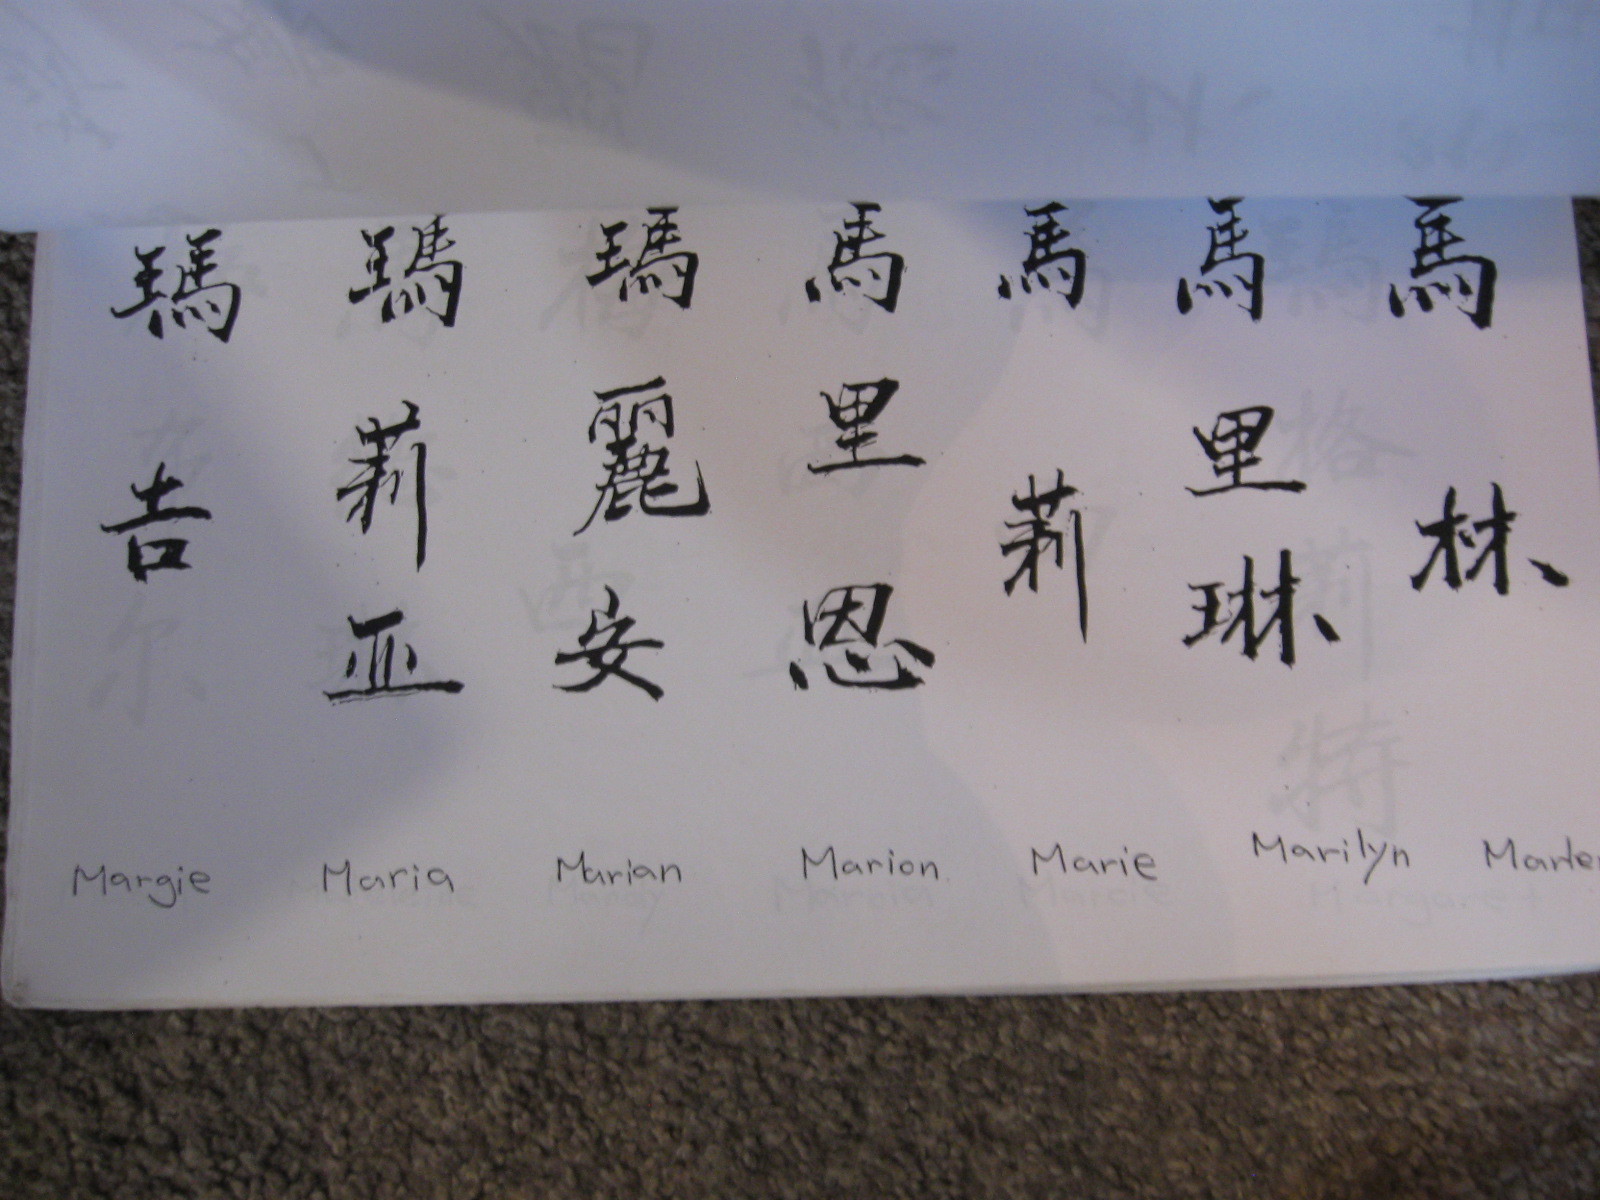 瑪吉
瑪莉亚
瑪麗安
馬里恩
馬莉
馬里琳
馬林
Margie
Maria
Marian
Marion
Marie
Marilyn